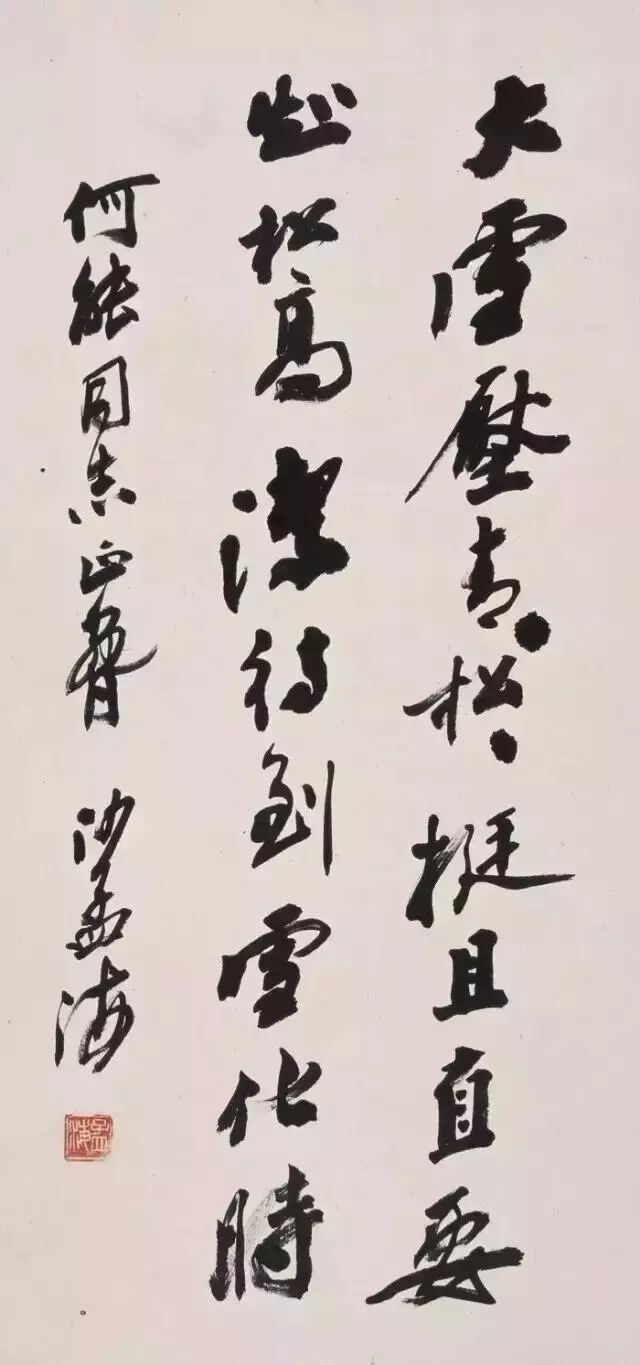 大雪壓青々松々挺且直要
知松高潔待到雪化時
何能同志正 沙孟海
孟海